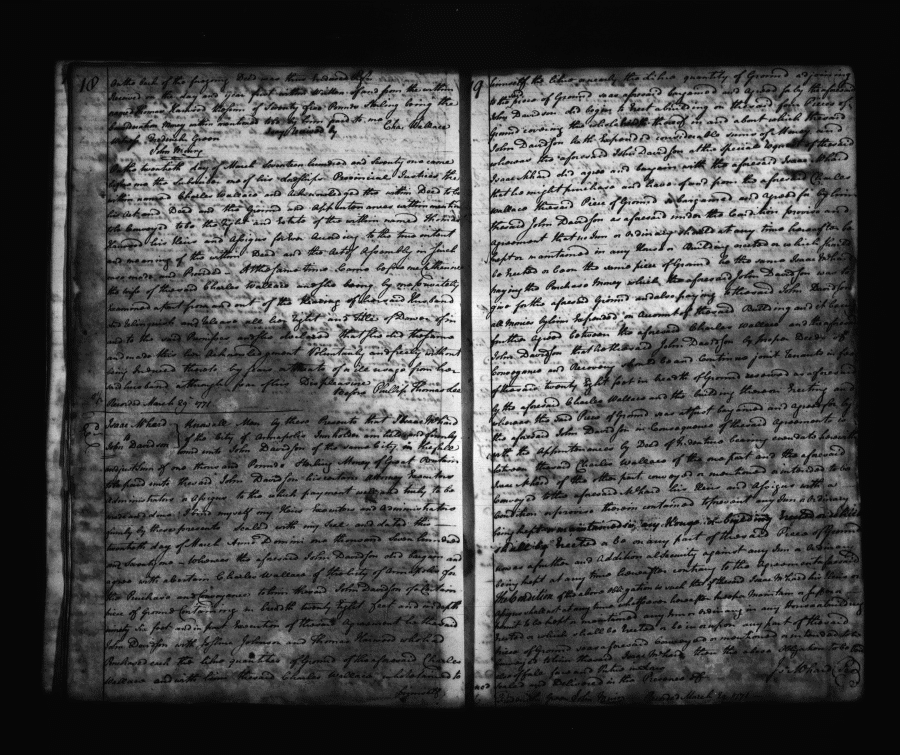 18
On the back of the foregoing Deed was thus Indorsed
Received on the day and year first within written of and from the within
named Thomas Harwood the sum of Seventy five Pounds Sterling being the
Consideration Money within mentioned to be by him paid to me Chas Wallace
Frederick Green
John McLure
On the twentieth day of March Seventeen hundred and Seventy one came
before me the Subscriber one of his Lordships Provincial Justices the
within named Charles Wallace and acknowledged the within Deed to be
his Act and Deed and the Ground and Appurtenances within mentioned
to be Conveyed to be the Right and Estate of the within named Thomas
Harwood his Heirs and Assigns forever According to the true intent
and meaning of the within Deed and the Acts of Assembly in such
case made and Provided. At the same time Came before me
the wife of the said Charles Wallace and she being by me privately
Examined apart from and out of the Hearing of her said Husband
did Relinquish and Release all her Right and Title of Dower of in
and to the said Premises and she declared that she did the same
and made this her Acknowledgment Voluntarily and freely without
being Induced thereto by fear or threats of or ill usage from her
said husband or through fear of his Displeasure
Before Philip Thomas Lee
Recorded March 29th 1771
Isaac McHard Know all Men by these Presents that I Isaac McHard
John Davidson of the City of Annapolis Innholder am held and firmly
bound unto John Davidson of the same City in the full
and just Sum of one thousand Pounds Sterling Money of Great Britain
to be paid unto the said John Davidson his certain Attorney Executors
Administrators or Assigns to the which payment well and truly to be
made and done I bind myself my Heirs Executors and Administrators
firmly by these presents Sealed with my Seal and dated this
twentieth day of March Anno Domini one thousand Seven hundred
and Seventy one Whereas the aforesaid John Davidson did bargain and
agree with a Certain Charles Wallace of the City of Annapolis for
the Purchase and Conveyance to him the said John Davidson of a Certain
piece of Ground Containing in breadth twenty Eight feet and in depth
ninety six feet and in part Execution of the said Agreement he the said
John Davidson with Joshua Johnson and Thomas Harwood who had
Purchased each the like quantities of Ground of the aforesaid Charles
Wallace and with him the said Charles Wallace who Retained to
himself
9
himself the like quantity of Ground adjoining
to the piece of Ground was aforesaid bargained and Agreed for by the aforesaid
John Davidson did begin to Erect a building on the said four Pieces of
Ground covering the whole breadth thereof in and about which the said
John Davidson hath Expended considerable Sums of Money and
whereas the aforesaid John Davidson at the Special request of the said
Isaac McHard did agree and bargain with the aforesaid Isaac McHard
that he might purchase and have of and from the aforesaid Charles
Wallace the said Piece of Ground so bargained and agreed for by him
the said John Davidson as aforesaid under the Condition proviso and
Agreement that no Inn or Ordinary should at any time hereafter be
kept or maintained in any House or Building erected or which should
be Erected or be on the same piece of Ground he the same Isaac McHard
paying the Purchase Money which the aforesaid John Davidson was to
give for the aforesaid Ground and also paying to the said John Davidson
all Monies by him Expended on Account of the said Building and it being
further Agreed between the aforesaid Charles Wallace and the aforesaid
John Davidson that he the said John Davidson by proper Deeds of
Conveyance and Recovery should be and Continue joint Tenants in fee
of the said twenty Eight feet in breadth of Ground
by the aforesaid Charles Wallace and the building thereon Erecting and
whereas the said Piece of Ground was at first bargained and agreed for by
the aforesaid John Davidson in Consequence of the said Agreements is
with the Appurtenances by Deed of Indenture bearing even date herewith
between the said Charles Wallace of the one part and the aforesaid
Isaac McHard of the other part conveyed or mentioned or intended to be
Conveyed to the aforesaid McHard his Heirs and Assigns with a
Condition or proviso therein contained to prevent any Inn or Ordinary
being kept or maintained in any House or Building Erected or which
shall be Erected or be on any part of the said Piece of Ground
Now as a further and Additional Security against any Inn or Ordinary
being kept at any time hereafter contrary to the Agreements aforesaid
The Condition of the above obligation is such that if the said Isaac McHard his Heirs or
Assigns shall not at any time whatsoever hereafter keep or Maintain or suffer or
permit to be kept or maintained any Inn or ordinary in any House or building
Erected or which shall be Erected or be in or upon any part of the said
piece of Ground was aforesaid Conveyed or mentioned or intended to be
conveyed to him the said Isaac McHard then the above obligation to be
Sealed and Delivered in the Presence of
Is. McHard
Frederick Green John Recorded March 30 1771